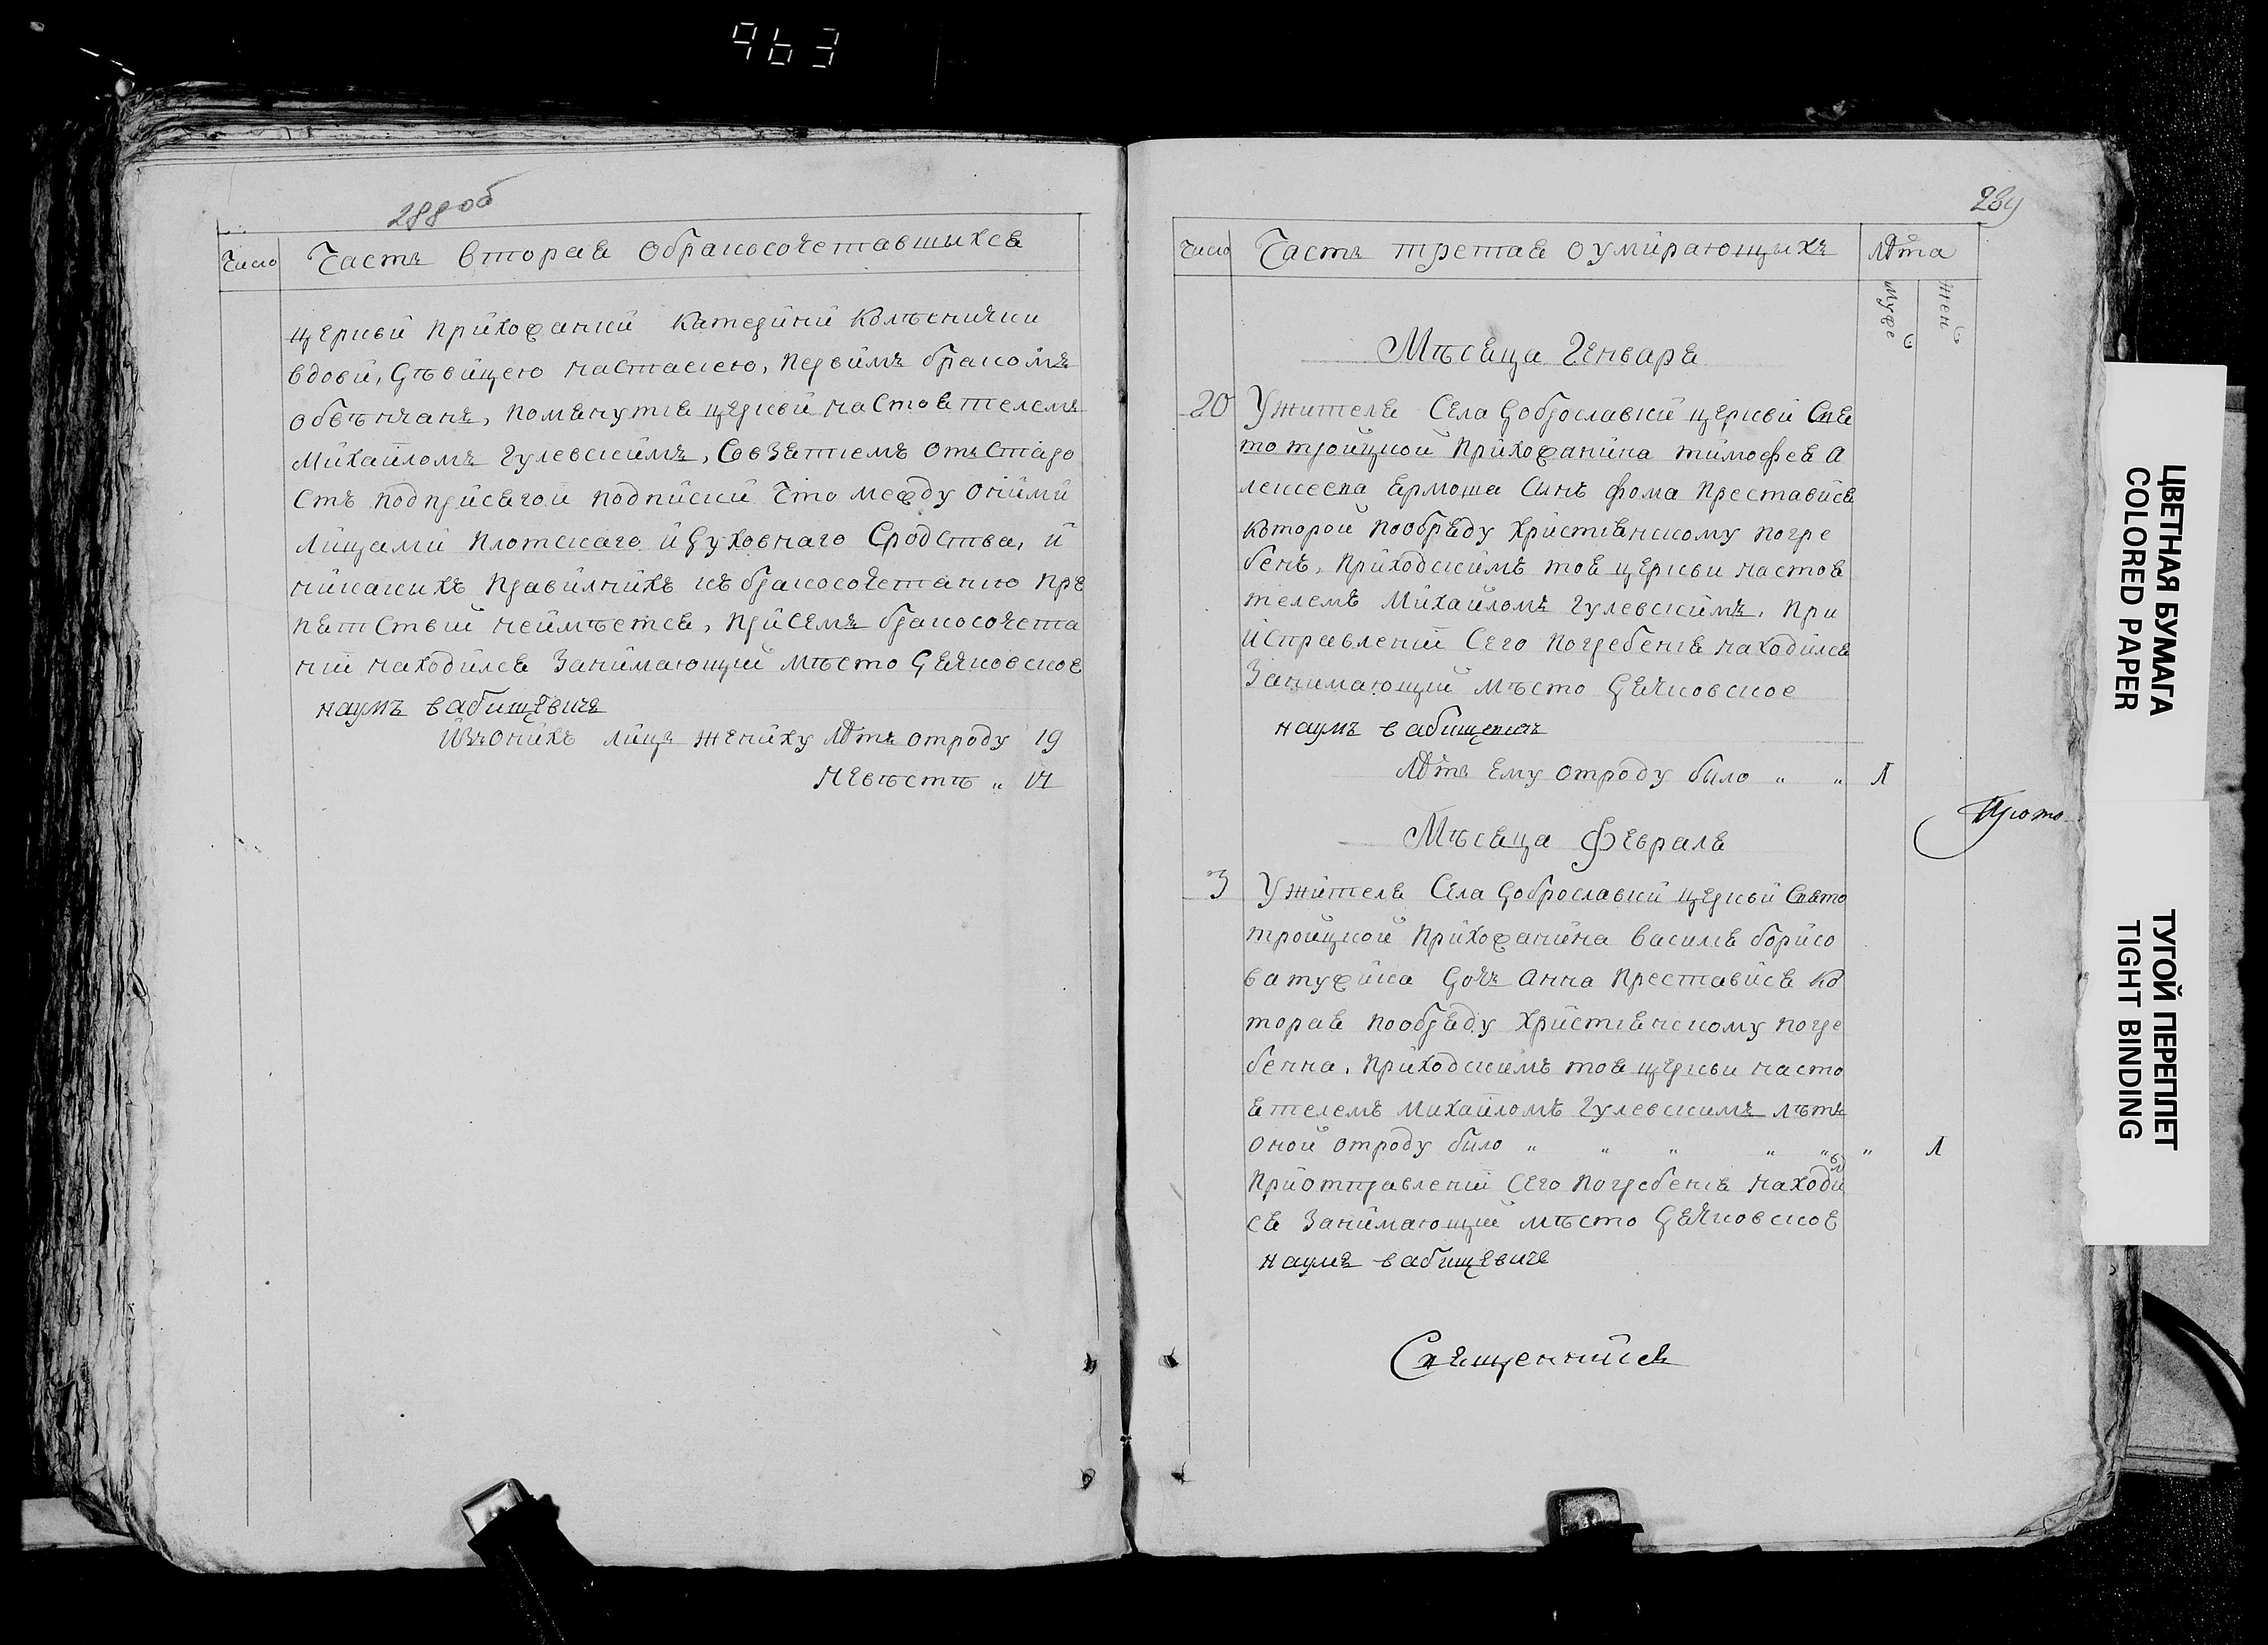 963
288об
Число Часть вторая обракосочетавшыхся
церкви прихожанки катерини Колѣснички
вдови, дѣвицею настасиею, первимъ бракомъ
обвѣнчанъ, помянутія церкви настоятелемъ
Михайломъ Гулевскимъ, Совзятіемъ отъ Старо
стъ подприсягой подписки что между оними
лицами плотскаго и духовнаго Сродства, и
никакихъ правилнихъ къ бракосочетанию пре
пятствій неимѣется, при семъ бракосочета
ніи находился Занимающій мѣсто Дячковское
наумъ вабищевичъ
Изъ онихъ лицъ жениху лѣтъ отроду 19
невѣстѣ „ 17
289
Число Часть третая оумирающыхъ Лѣта
Мужеб
женб
Мѣсяца Генваря
20 У жителя Села Доброславки церкви Свя
то троицкой прихожанина тимофея а
лексеева Ермоша Синъ фома преставися
которой пообряду христіянскому погре
бенъ, приходскимъ тоя церкви настоя
телемъ Михайломъ Гулевскимъ, при
исправленіи Сего погребенія находился
Занимающій мѣсто Дячковское
наумъ вабищевичъ
Лѣтъ ему отроду било „ „ Л
Прото
Мѣсяца Февраля
3 У жителя Села Доброславки церкви Свято
троицкой прихожанина василія борисо
ва тужика Дочь Анна преставися ко
торая пообряду христіянскому погре
бенна, приходскимъ тоя церкви насто
ятелемъ Михайломъ Гулевскимъ лѣтъ
оной отроду било „ „ „ „ „ „ Л
При отправленіи Сего погребенія находил
ся Занимающій мѣсто Дячковское
наумъ вабищевичъ
Священникъ
ЦВЕТНАЯ БУМАГА
COLORED PAPER
ТУГОЙ ПЕРЕПЛЕТ
TIGHT BINDING